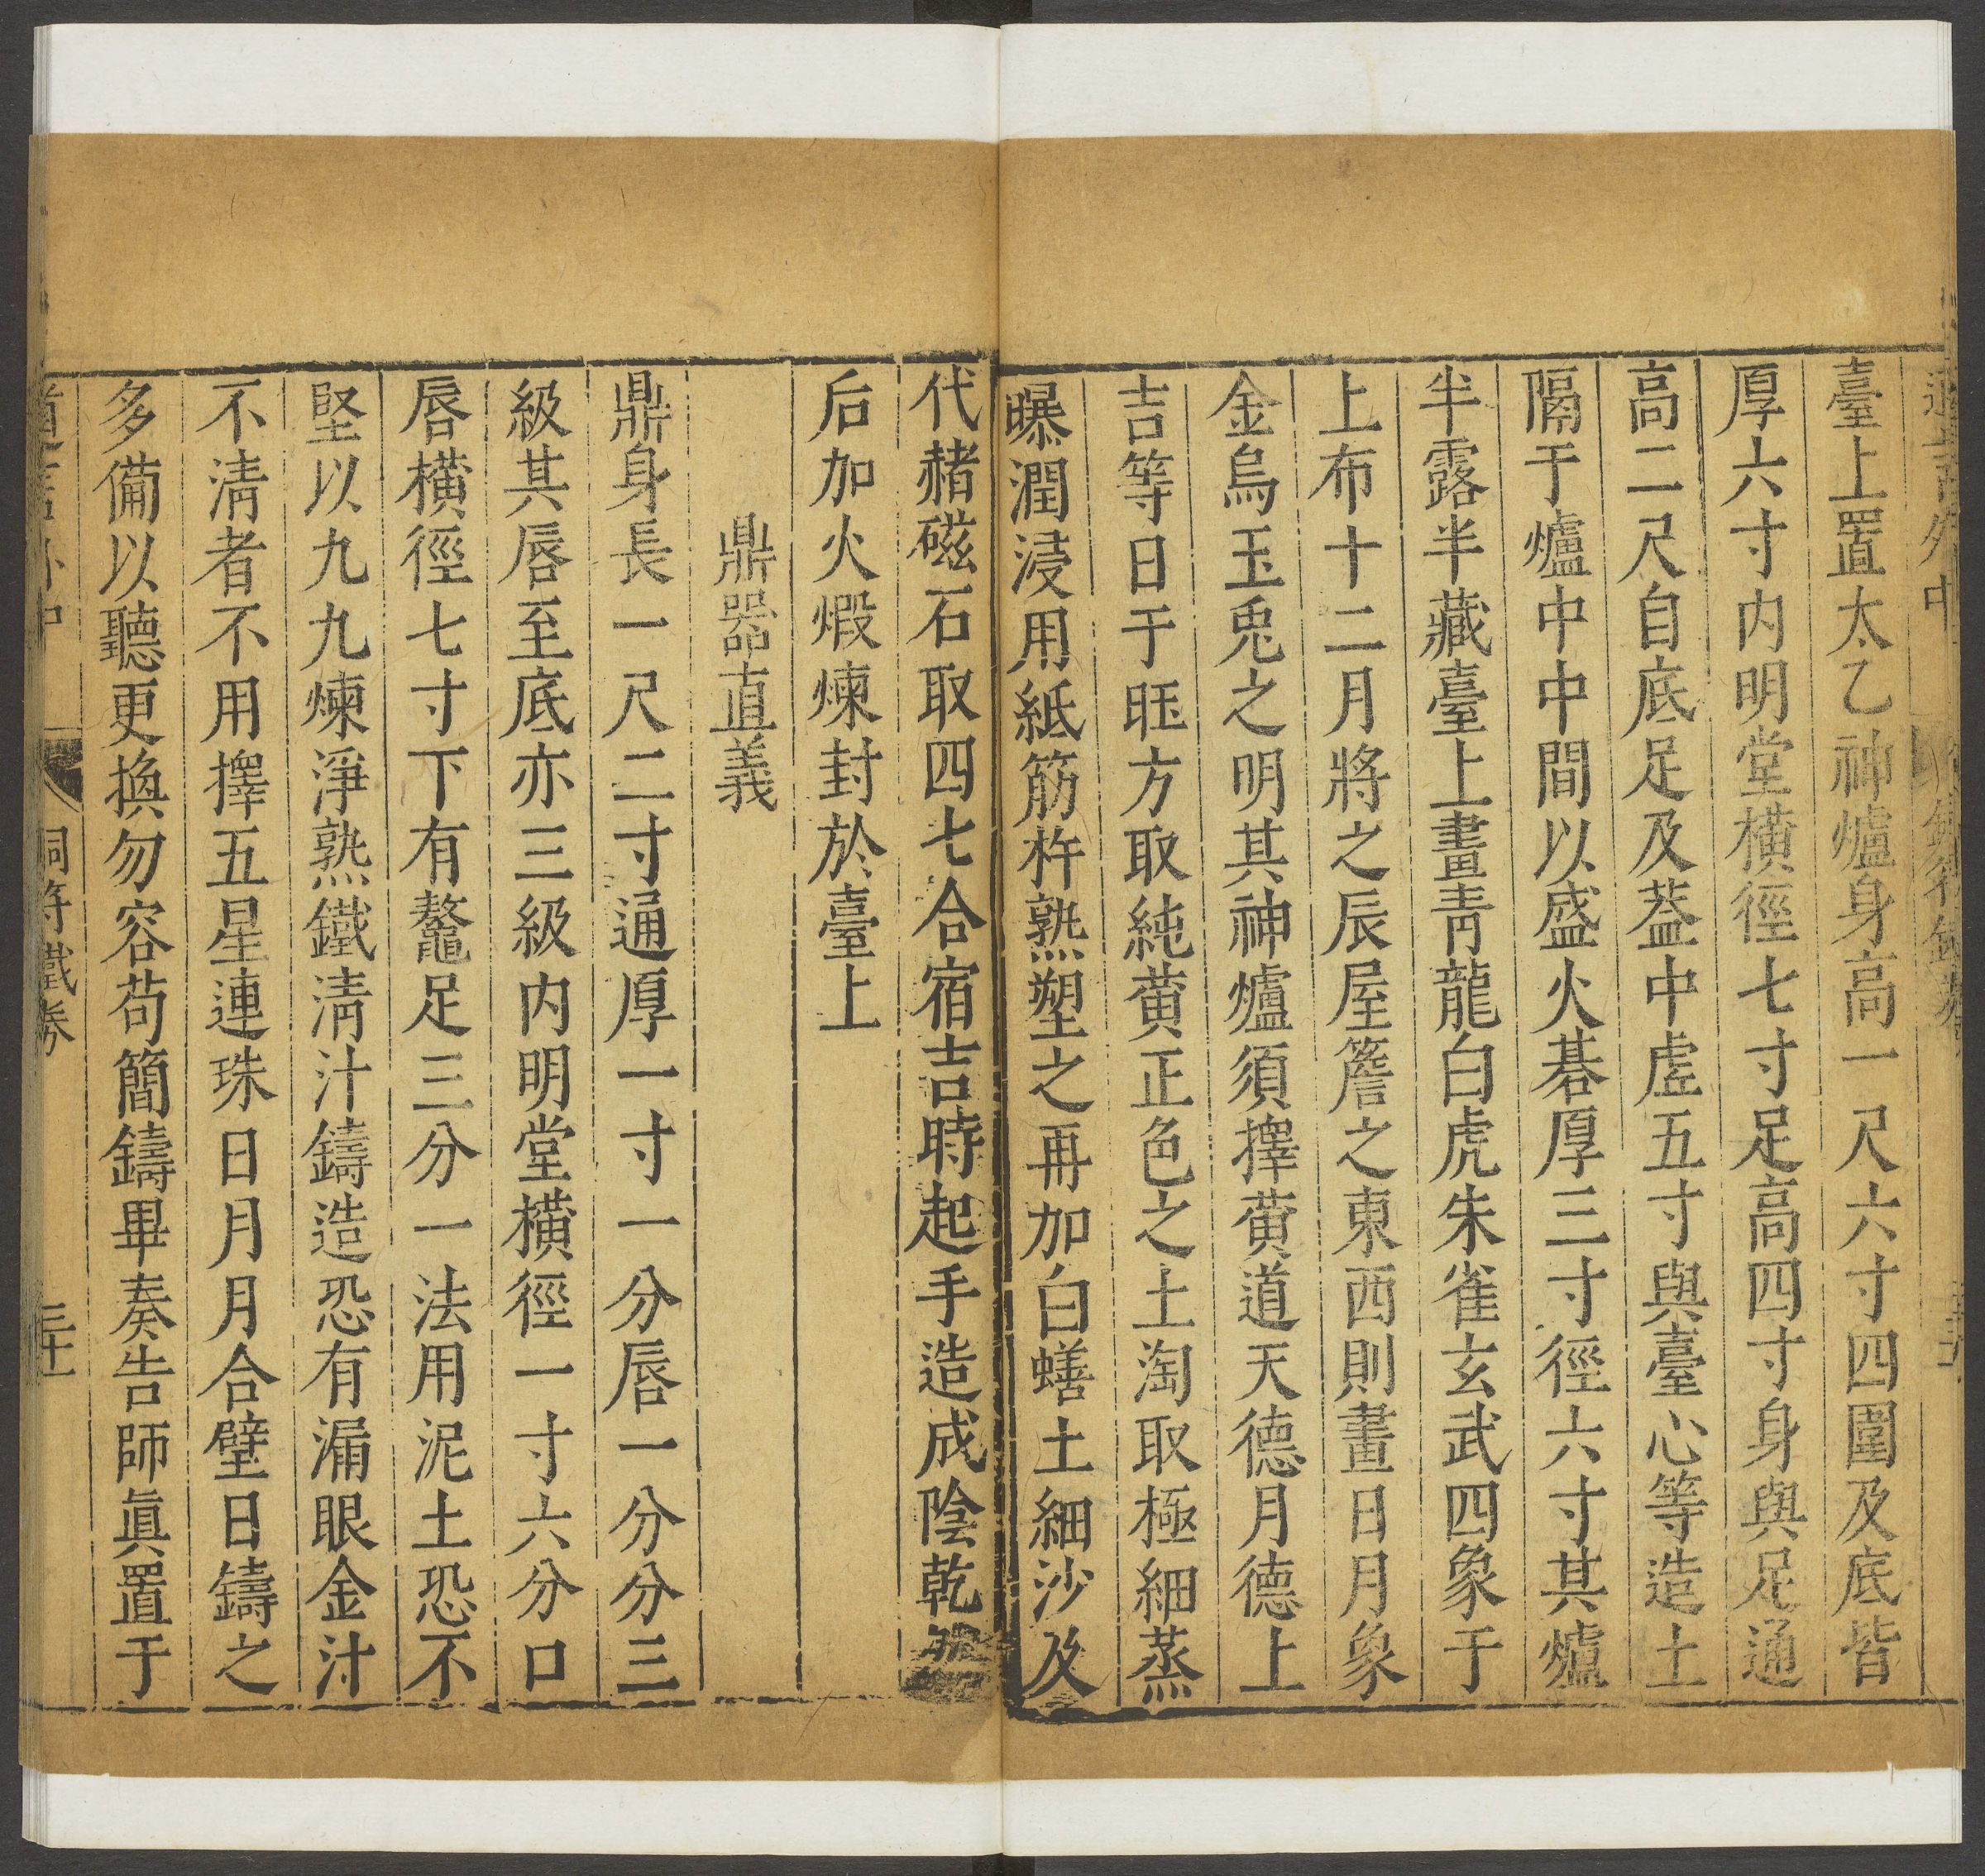 臺上置太乙神爐身高一尺六寸四圍及底皆
厚六寸内明堂橫徑七寸足高四寸身與足通
高二尺自底足及葢中虛五寸與臺心等造土
隔于爐中中間以盛火碁厚三寸徑六寸其爐
半露半藏臺上畫青龍白虎朱雀玄武四象于
上布十二月將之辰屋簷之東西則畫日月象
金烏玉兎之明其神爐須擇黄道天德月德上
吉等日于旺方取純黄正色之土淘取極細蒸
曝潤浸用紙筋杵熟塑之再加白蟮土細沙及
代赭磁石取四七合宿吉時起手造成陰乾然
后加火煅煉封於臺上
鼎器直義
鼎身長一尺二寸通厚一寸一分唇一分分三
級其唇至底亦三級内明堂橫徑一寸六分口
唇橫徑七寸下有鼇足三分一法用泥土恐不
堅以九九煉淨熟鐵清汁鑄造恐有漏眼金汁
不清者不用擇五星連珠日月月合璧日鑄之
多備以聽更換勿容苟簡鑄畢奏告師眞置于
道言外中 洞符鐵券